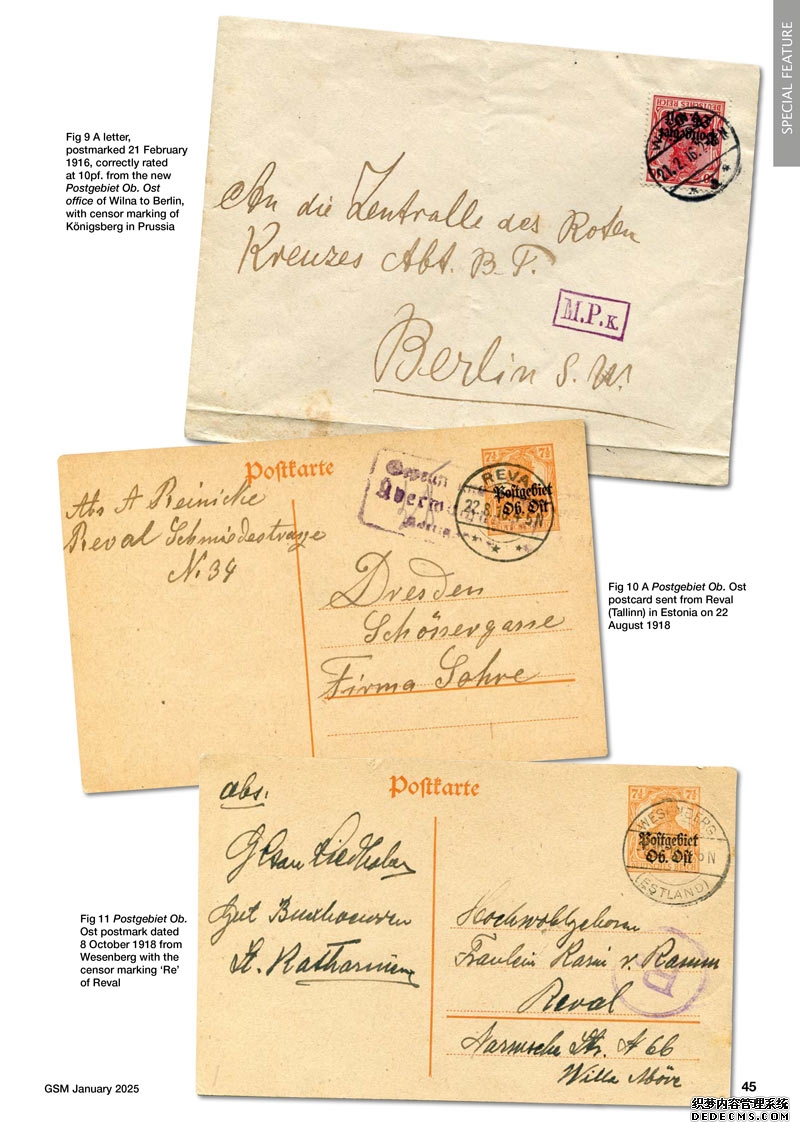 SPECIAL FEATURE
Fig 9 A letter,
postmarked 21 February
1916, correctly rated
at 10pf. from the new
Postgebiet Ob. Ost
office of Wilna to Berlin,
with censor marking of
Königsberg in Prussia
DEUTSCHES REICH
21.2.16.
An die Zentralle des Roten
Kreuzes Abt. B. F.
M.P.K.
Berlin S. W.
Postkarte
Abs A Reinicke
Reval Schmiedestrasse
N. 34
7½ 7½
REVAL
Postgebiet
Ob. Ost
22.8.18
Dresden
Schössergasse
Firma Sohre
Fig 10 A Postgebiet Ob. Ost
postcard sent from Reval
(Tallinn) in Estonia on 22
August 1918
Postkarte
abs:
Gut Buxhoewden
St. Katharinen
7½ 7½
WESENBERG
Postgebiet
Ob. Ost
(ESTLAND)
Hochwohlgeboren
Fräulein Karin v. Ramm
Reval
Narwsche Str. 66
Villa Möve
Fig 11 Postgebiet Ob.
Ost postmark dated
8 October 1918 from
Wesenberg with the
censor marking ‘Re’
of Reval
GSM January 2025
45
织梦内容管理系统
DEDECMS.COM